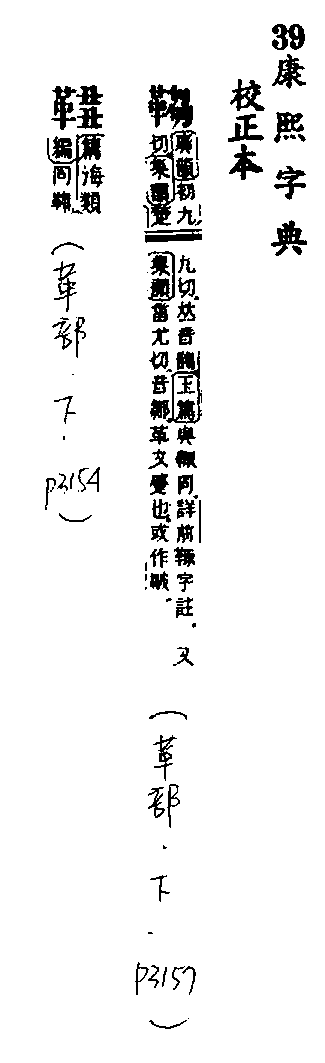 39康熙字典
校正本
廣韻初九
切集韻楚
九切𠀤音
玉篇與
同詳前
字註又
集韻甾尤切音鄒革文蹙也或作皺
(革部.下.p3157)
篇海類
編同
(革部.下.p3154)